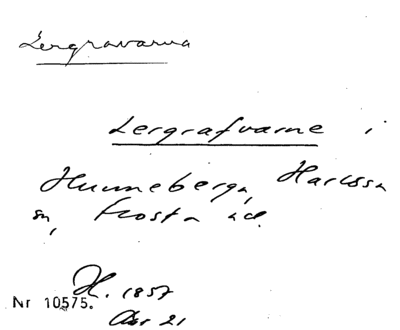 Lergravarna
Lergrafvarne i
Hunneberga, Harlösa
sn, Frosta hd.
H. 1857
Nr 10575.
Avs 21